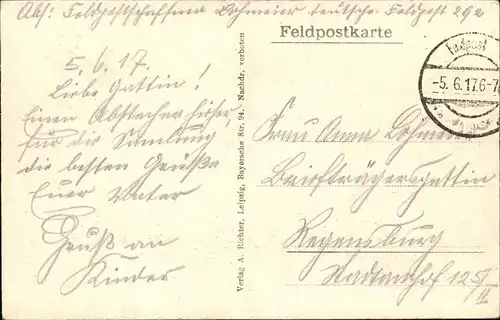 Abs: Feldpostschaffner Lohmeier deutsche Feldpost 292
Feldpostkarte
Feldpost
-5.6.17.6-7
5.6.17.
Liebe Gattin!
Einen Abstecher hieher,
für die Samlung
die besten Grüße
Euer Vater
Gruß an
Kinder
Verlag A. Richter, Leipzig, Bayersche Str. 94. Nachdr. verboten
Frau Anna Lohmeier
Briefträgersgattin
Regensburg
Stadtamhof 125/
II